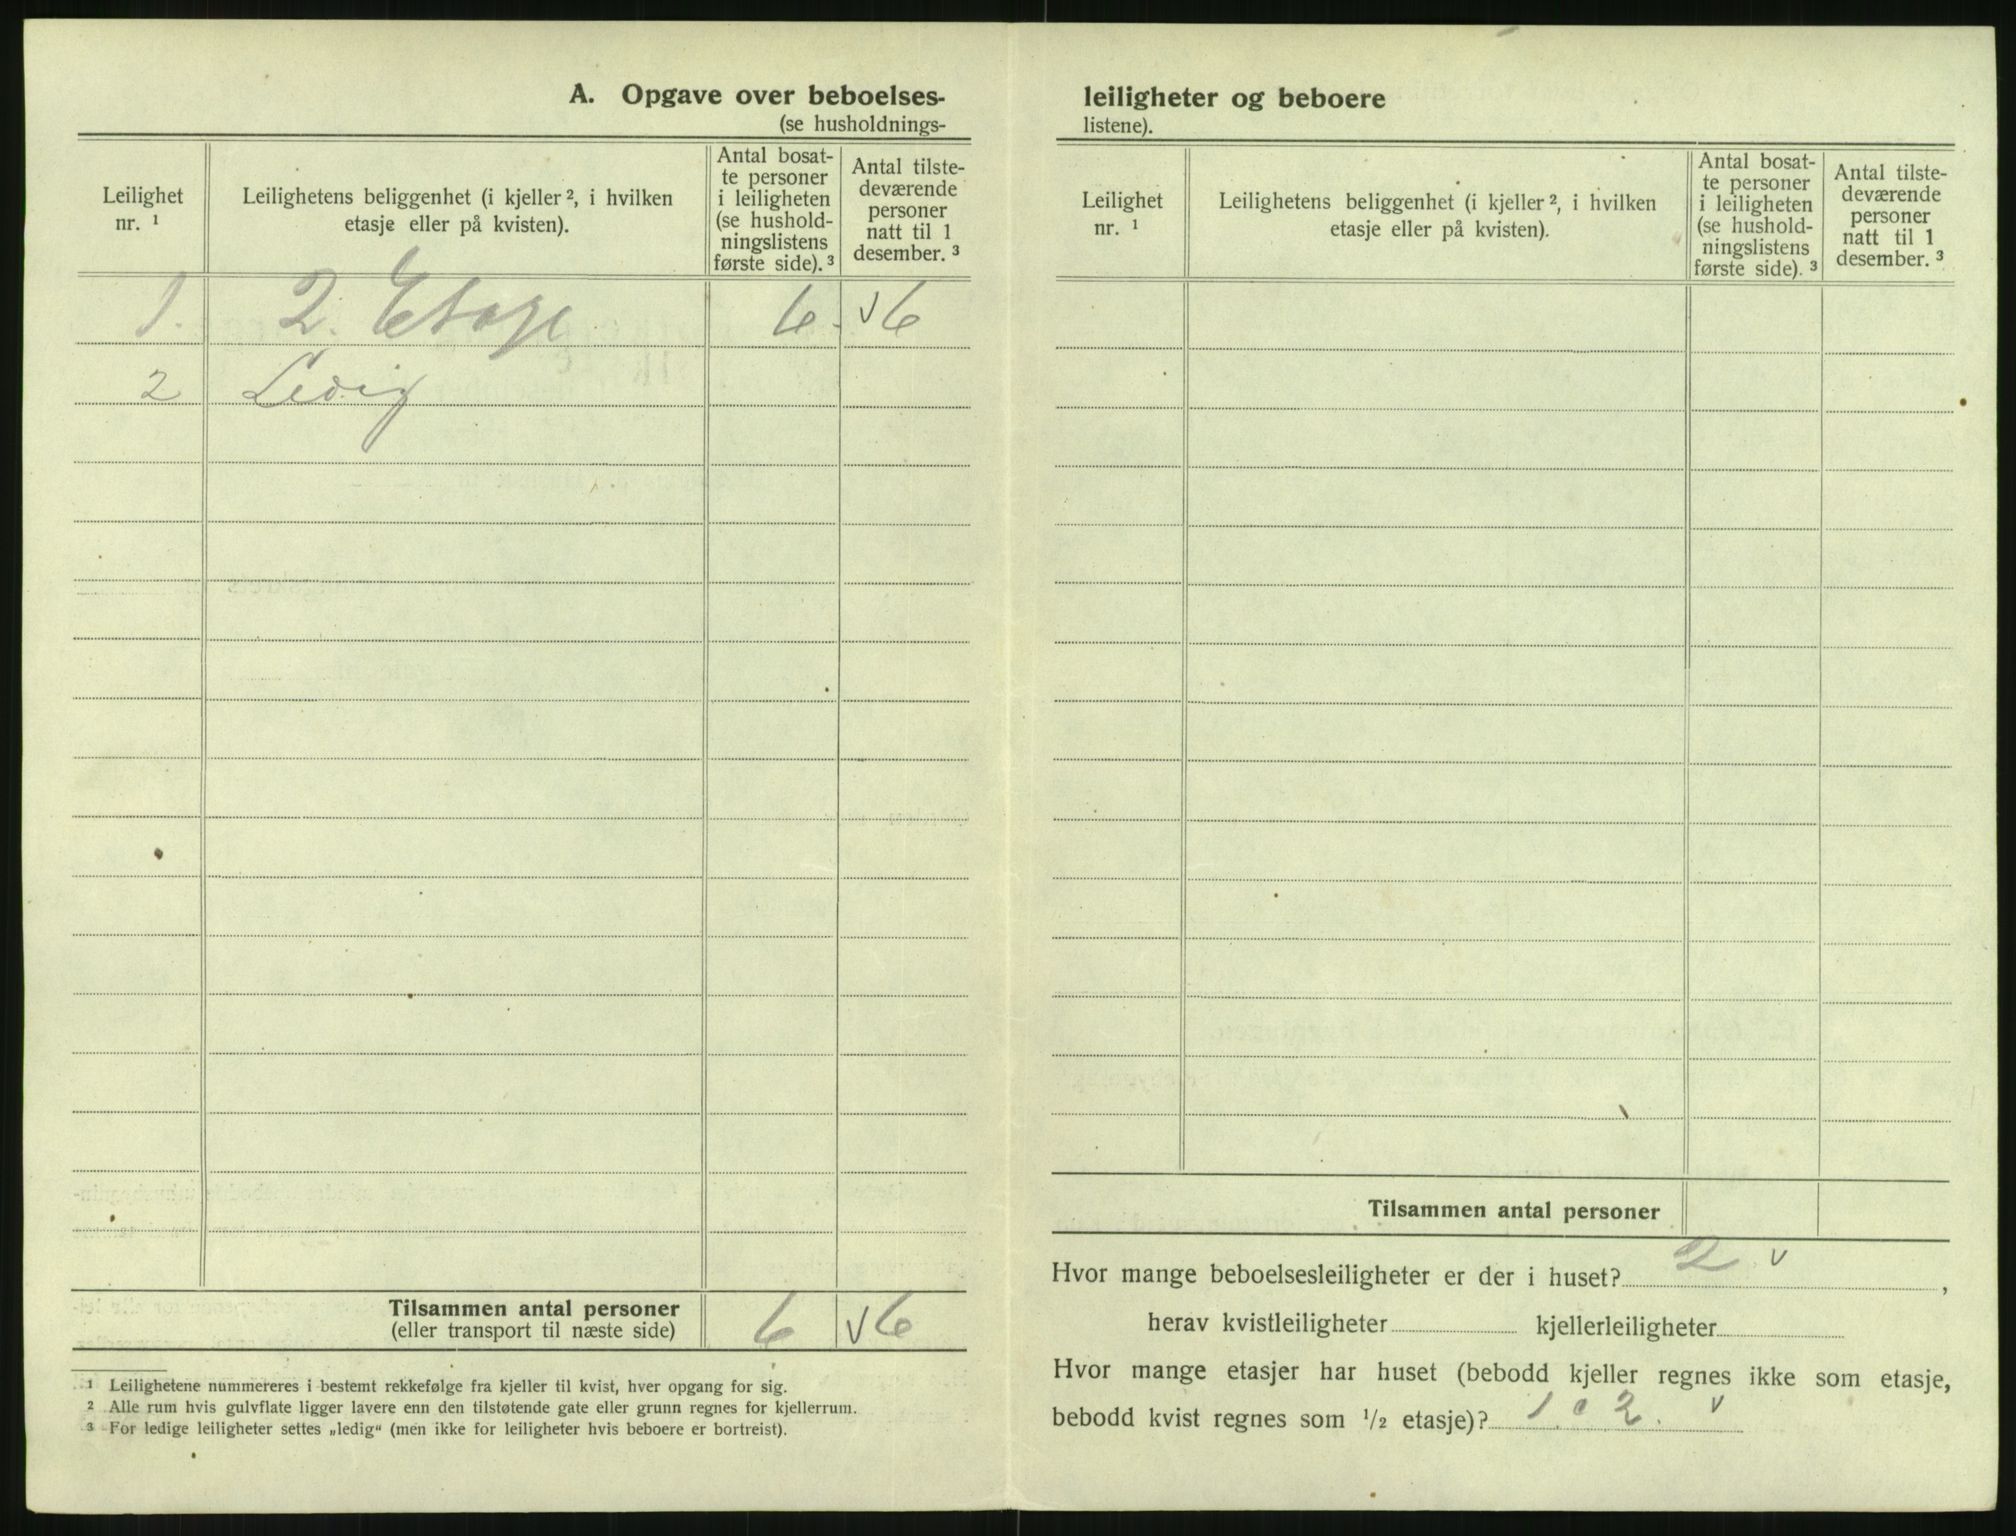 A. Opgave over beboelses-
(se husholdnings-
Leilighet
nr. ¹
Leilighetens beliggenhet (i kjeller ², i hvilken
etasje eller på kvisten).
Antal bosat-
te personer
i leiligheten
(se hushold-
ningslistens
første side). ³
Antal tilste-
deværende
personer
natt til 1
desember. ³
1. 2. Etage 6. v 6
2 Ledig
Tilsammen antal personer
(eller transport til næste side)
6 v 6
¹ Leilighetene nummereres i bestemt rekkefølge fra kjeller til kvist, hver opgang for sig.
² Alle rum hvis gulvflate ligger lavere enn den tilstøtende gate eller grunn regnes for kjellerrum.
³ For ledige leiligheter settes „ledig“ (men ikke for leiligheter hvis beboere er bortreist).
leiligheter og beboere
listene).
Leilighet
nr. ¹
Leilighetens beliggenhet (i kjeller ², i hvilken
etasje eller på kvisten).
Antal bosat-
te personer
i leiligheten
(se hushold-
ningslistens
første side). ³
Antal tilste-
deværende
personer
natt til 1
desember. ³
Tilsammen antal personer
Hvor mange beboelsesleiligheter er der i huset? 2 v ,
herav kvistleiligheter kjellerleiligheter
Hvor mange etasjer har huset (bebodd kjeller regnes ikke som etasje,
bebodd kvist regnes som ¹/₂ etasje)? 1 2. v